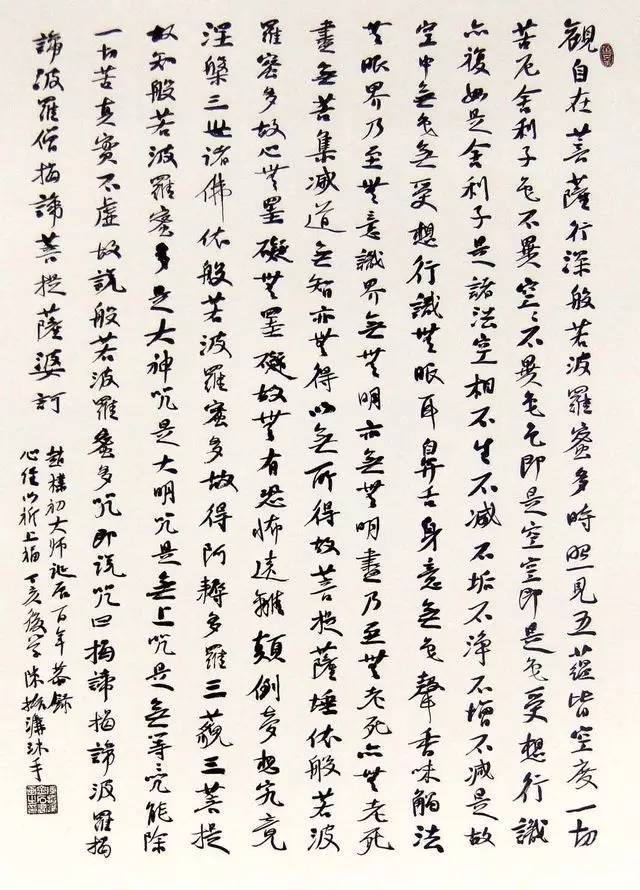 觀自在菩薩行深般若波羅蜜多時照見五蘊皆空度一切
苦厄舍利子色不異空〻不異色色即是空空即是色受想行識
亦復如是舍利子是諸法空相不生不滅不垢不淨不增不減是故
空中無色無受想行識無眼耳鼻舌身意無色聲香味觸法
無眼界乃至無意識界無無明亦無無明盡乃至無老死亦無老死
盡無苦集滅道無智亦無得以無所得故菩提薩埵依般若波
羅蜜多故心無罣礙無罣礙故無有恐怖遠離顛倒夢想究竟
涅槃三世諸佛依般若波羅蜜多故得阿耨多羅三藐三菩提
故知般若波羅蜜多是大神咒是大明咒是無上咒是無等〻咒能除
一切苦真實不虛故說般若波羅蜜多咒即說咒曰揭諦揭諦波羅揭
諦波羅僧揭諦菩提薩婆訶
趙樸初大師誕辰百年恭錄
心經以祈上福丁亥後學陳振濂沐手